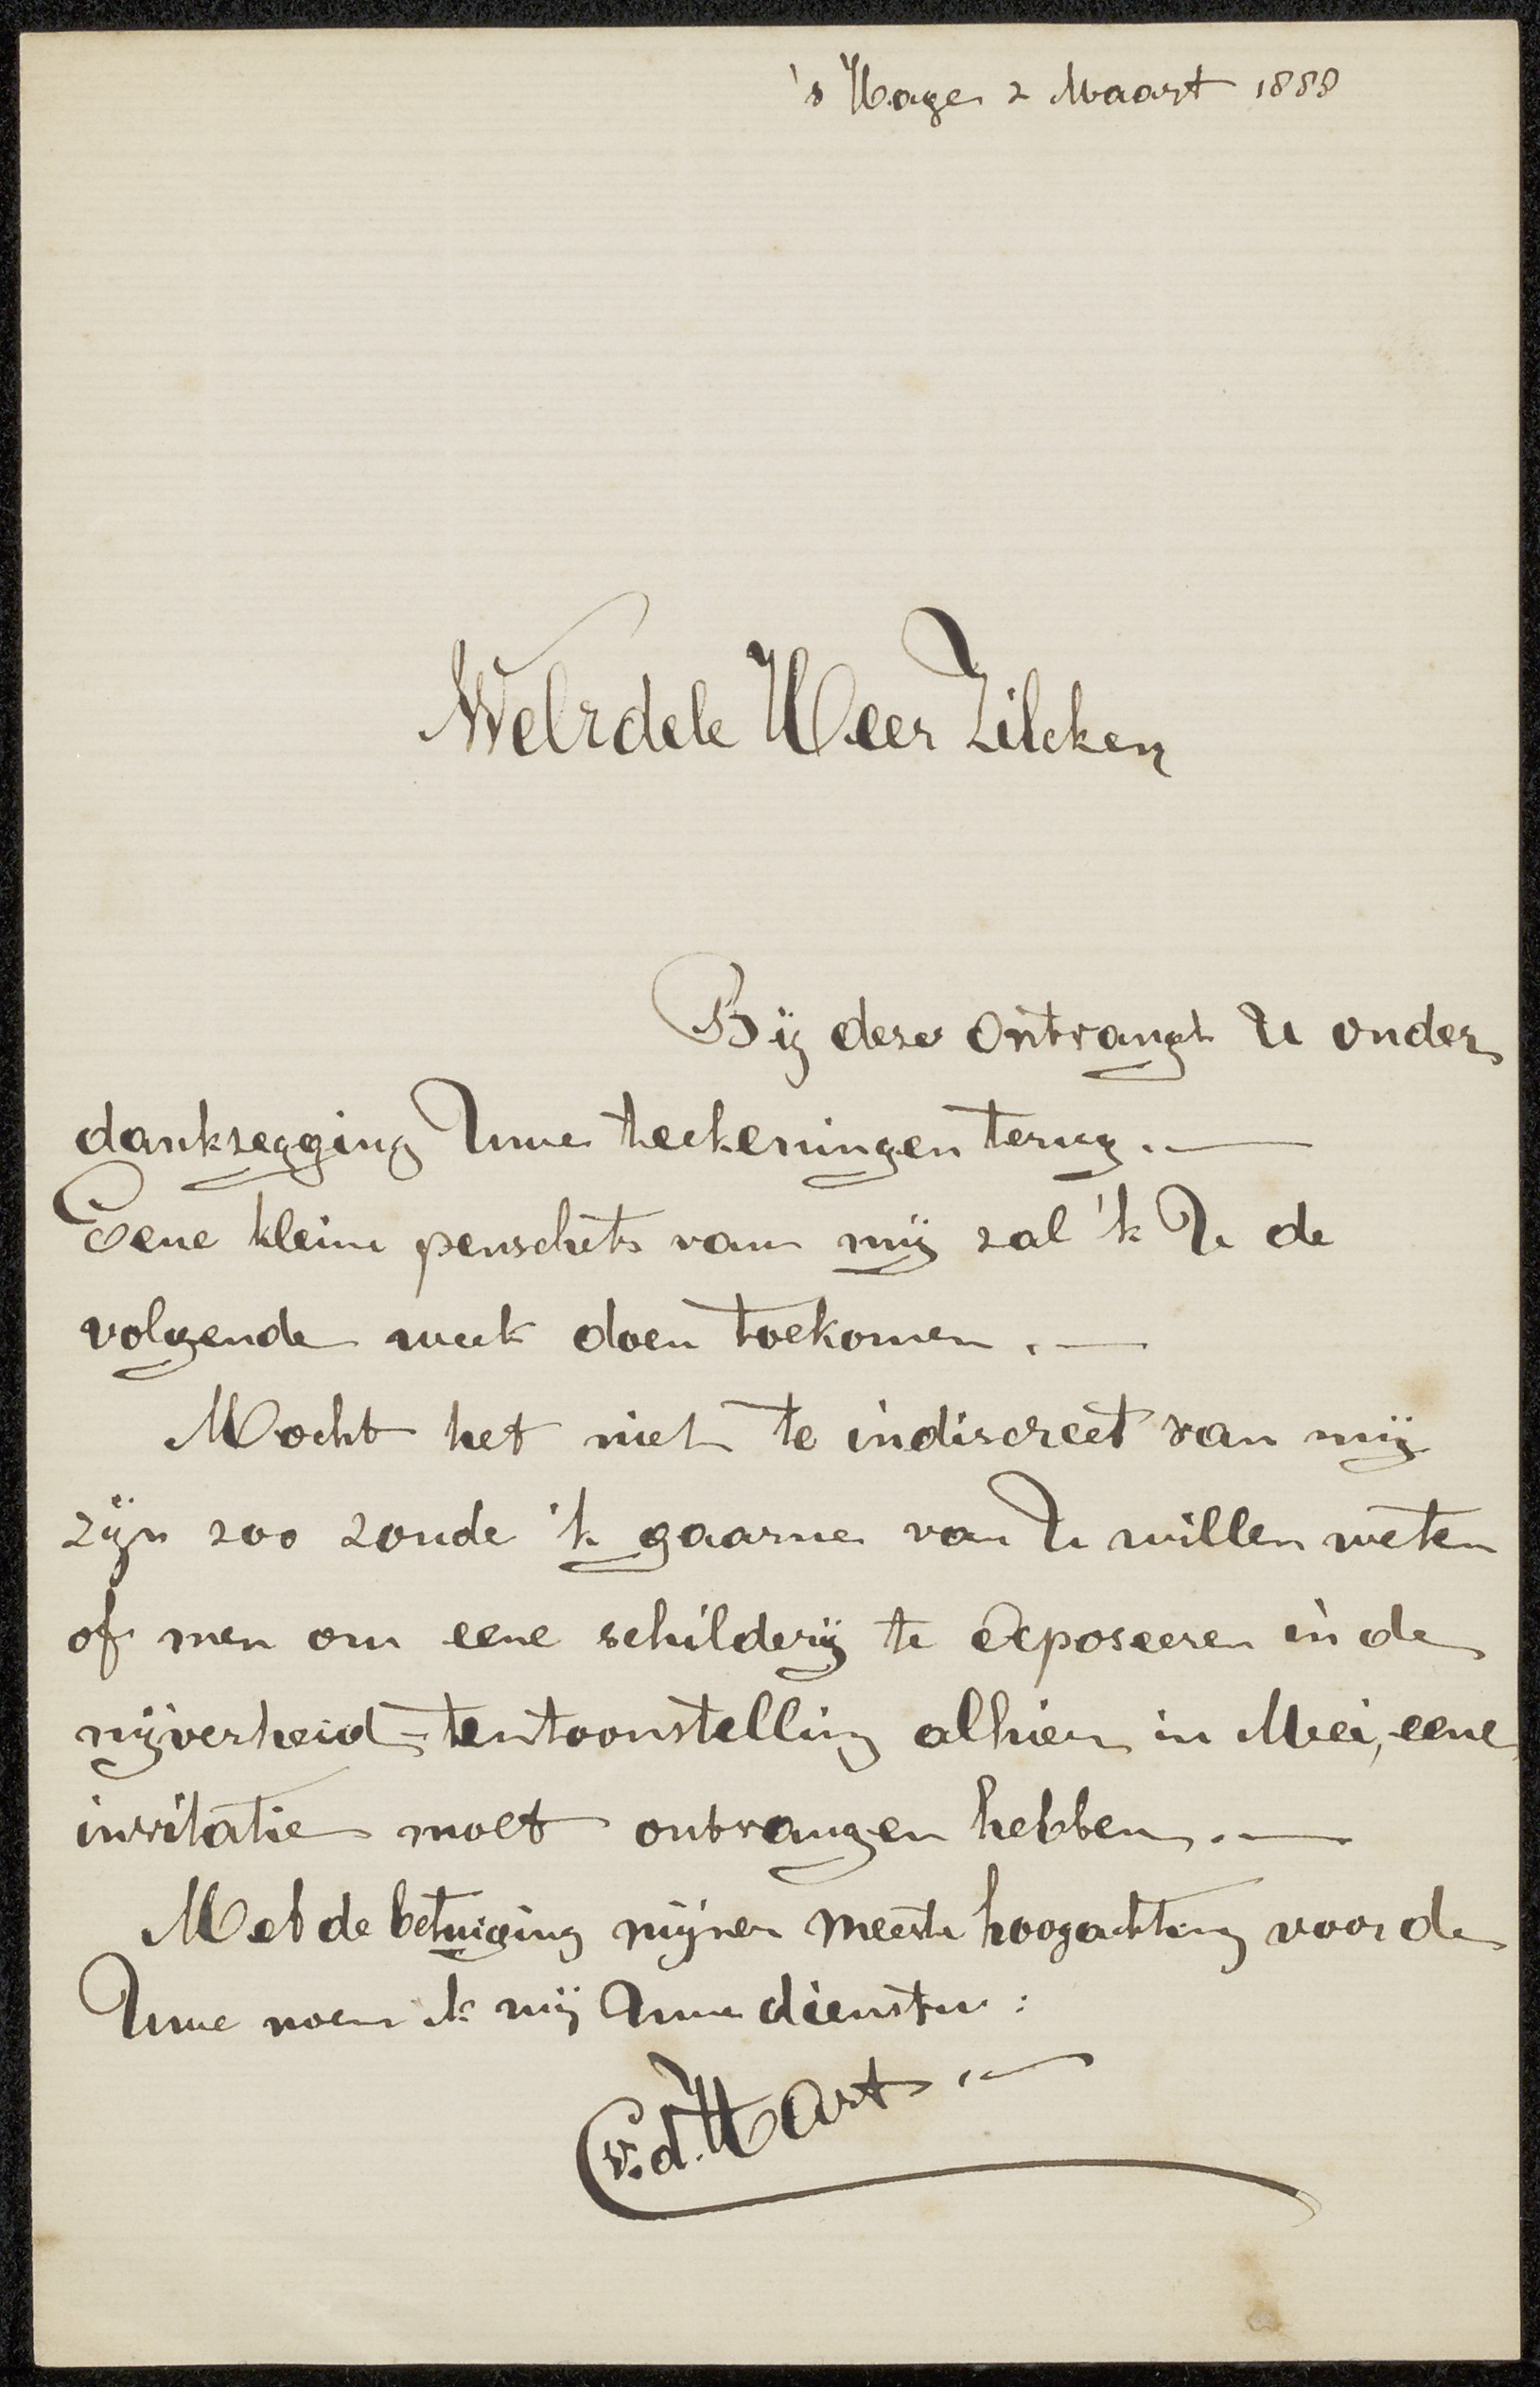 's Hage 2 Maart 1888
WelEdele Heer Zilcken
Bij deze ontvangt U onder
dankzegging Uwe teekeningen terug. —
Eene kleine penschets van mij zal 'k U de
volgende week doen toekomen. —
Mocht het niet te indiscreet van mij
zijn zoo zoude 'k gaarne van U willen weten
of men om eene schilderij te exposeeren in de
nijverheid-tentoonstelling alhier in Mei, eene
invitatie moet ontvangen hebben. —
Met de betuiging mijner meeste hoogachting voor de
Uwe noem ik mij Uwe dienstw:
C v. d. Hart. —